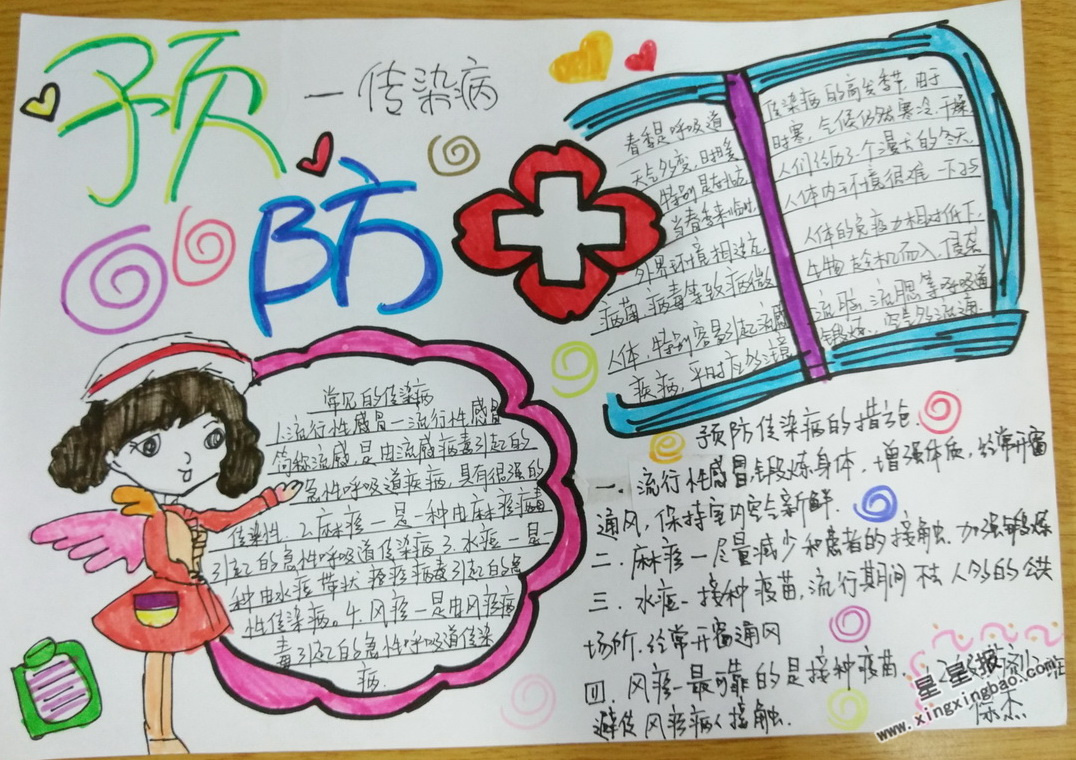 预
防
一传染病
春季是呼吸道
天气多变,时暖
特别是
当春季来临时
外界环境相适应
病菌病毒等致病微
人体,特别容易引起流感
疾病,平时应多注意
传染病的高发季节,由于
时寒,气候仍然寒冷、干燥
人们经历了一个漫长的冬天
人体内环境很难一下与
人体的免疫力相对低下,
生物趁机而入,侵袭
流脑,流腮等呼吸道
锻炼,室多外流通
常见的传染病
1.流行性感冒一流行性感冒
简称流感,是由流感病毒引起的
急性呼吸道疾病,具有很强的
传染性.2.麻疹一是一种由麻疹病毒
引起的急性呼吸道传染病3.水痘一是一
种由水痘带状疱疹病毒引起的急
性传染病。4.风疹一是由风疹病
毒引起的急性呼吸道传染
病.
预防传染病的措施
一.流行性感冒,锻炼身体,增强体质,经常开窗
通风,保持室内空气新鲜.
二.麻疹一尽量减少和患者的接触.加强锻炼
三.水痘一接种疫苗,流行期间不去人多的公共
场所.经常开窗通风
四.风疹一最可靠的是接种疫苗
避免风疹病人接触.
星星报
www.xingxingbao.com